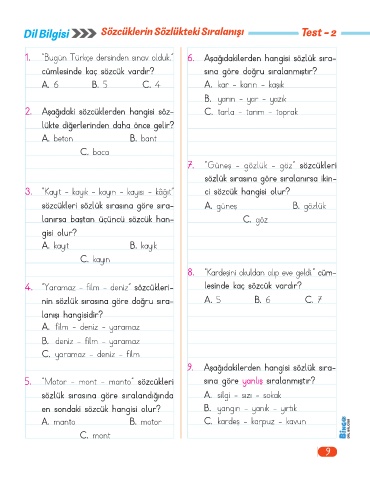 Dil Bilgisi
Sözcüklerin Sözlükteki Sıralanışı
Test - 2
1. "Bugün Türkçe dersinden sınav olduk."
cümlesinde kaç sözcük vardır?
A. 6 B. 5 C. 4
2. Aşağıdaki sözcüklerden hangisi söz-
lükte diğerlerinden daha önce gelir?
A. beton B. bant
C. baca
3. "Kayıt - kayık - kayın - kayısı - kâğıt"
sözcükleri sözlük sırasına göre sıra-
lanırsa baştan üçüncü sözcük han-
gisi olur?
A. kayıt B. kayık
C. kayın
4. "Yaramaz - film - deniz" sözcükleri-
nin sözlük sırasına göre doğru sıra-
lanışı hangisidir?
A. film - deniz - yaramaz
B. deniz - film - yaramaz
C. yaramaz - deniz - film
5. "Motor - mont - manto" sözcükleri
sözlük sırasına göre sıralandığında
en sondaki sözcük hangisi olur?
A. manto B. motor
C. mont
6. Aşağıdakilerden hangisi sözlük sıra-
sına göre doğru sıralanmıştır?
A. kar - karın - kaşık
B. yarın - yar - yazık
C. tarla - tarım - toprak
7. "Güneş - gözlük - göz" sözcükleri
sözlük sırasına göre sıralanırsa ikin-
ci sözcük hangisi olur?
A. güneş B. gözlük
C. göz
8. "Kardeşini okuldan alıp eve geldi." cüm-
lesinde kaç sözcük vardır?
A. 5 B. 6 C. 7
9. Aşağıdakilerden hangisi sözlük sıra-
sına göre yanlış sıralanmıştır?
A. silgi - sızı - sokak
B. yangın - yanık - yırtık
C. kardeş - karpuz - kavun
9